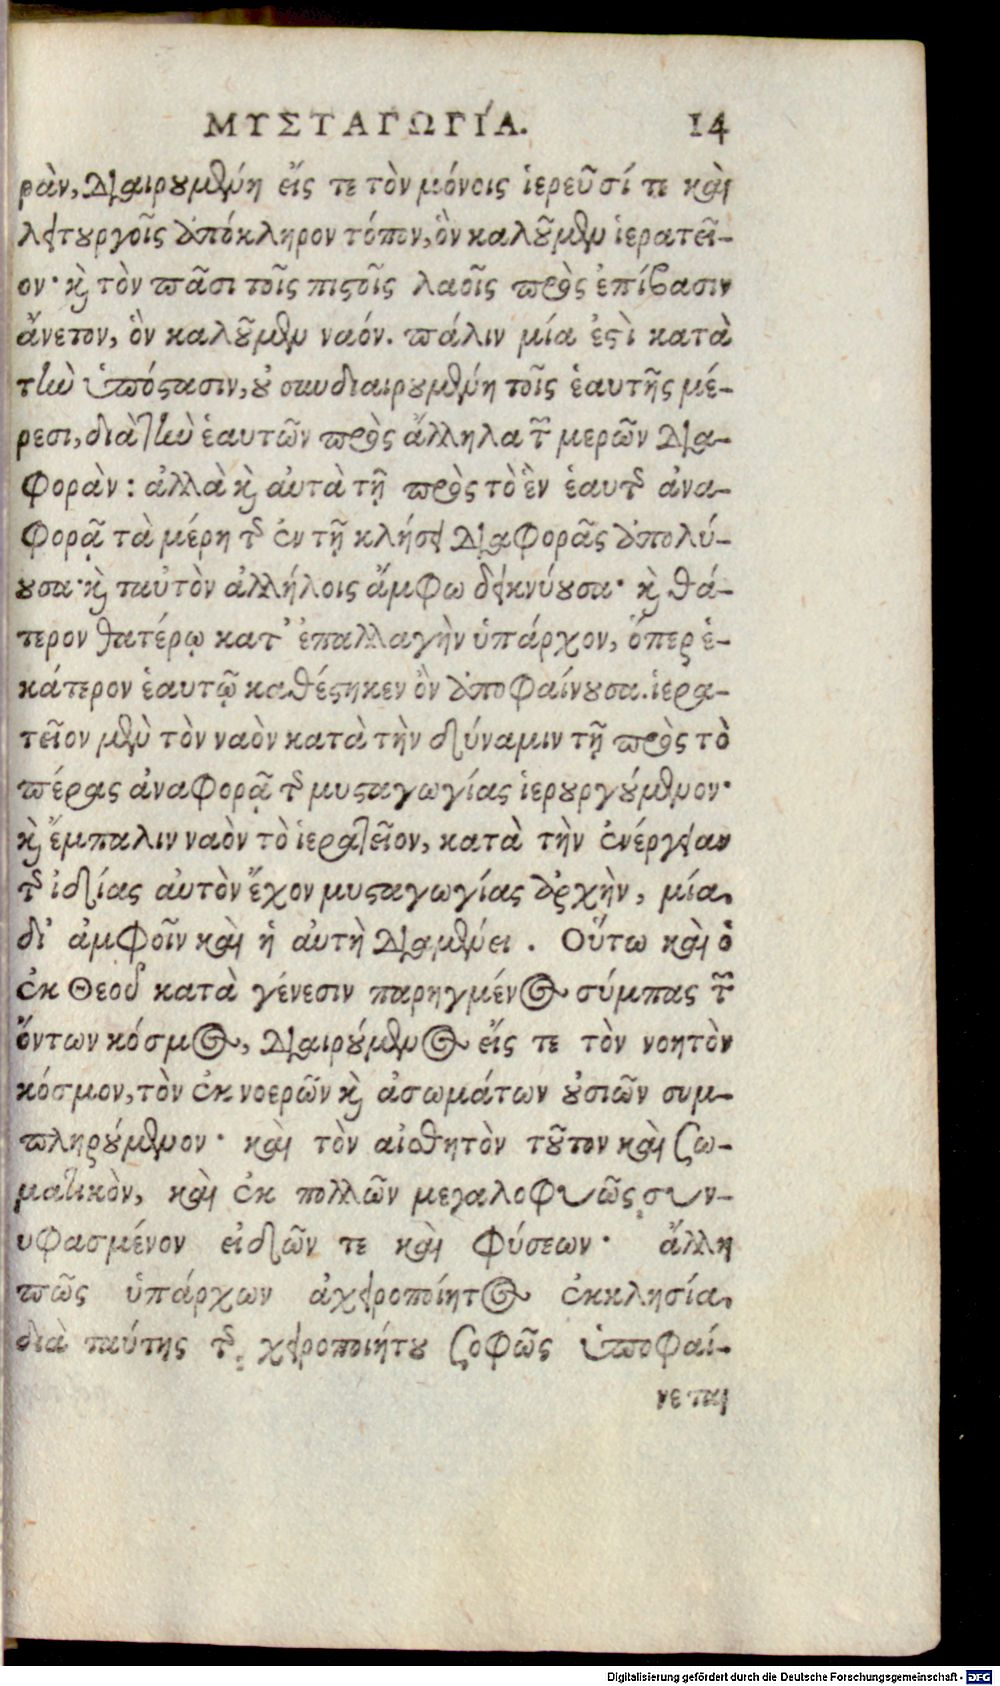 ΜΥΣΤΑΓΩΓΊΑ. 14
ρὰν, διαιρουμένη εἴς τε τὸν μόνοις ἱερεῦσί τε καὶ
λειτουργοῖς ἀπόκληρον τόπον, ὃν καλοῦμεν ἱερατεῖ-
ον· καὶ τὸν πᾶσι τοῖς πιστοῖς λαοῖς πρὸς ἐπίβασιν
ἄνετον, ὃν καλοῦμεν ναόν. πάλιν μία ἐστὶ κατὰ
τὴν ὑπόστασιν, οὐ συνδιαιρουμένη τοῖς ἑαυτῆς μέ-
ρεσι, διὰ τὴν ἑαυτῶν πρὸς ἄλληλα τῶν μερῶν δια-
φορὰν: ἀλλὰ καὶ αὐτὰ τῇ πρὸς τὸ ἓν ἑαυτῆς ἀνα-
φορᾷ τὰ μέρη τῆς ἐν τῇ κλήσει διαφορᾶς ἀπολύ-
ουσα· καὶ ταὐτὸν ἀλλήλοις ἄμφω δεικνύουσα· καὶ θά-
τερον θατέρῳ κατ' ἐπαλλαγὴν ὑπάρχον, ὅπερ ἑ-
κάτερον ἑαυτῷ καθέστηκεν ὂν ἀποφαίνουσα. ἱερα-
τεῖον μὲν τὸν ναὸν κατὰ τὴν δύναμιν τῇ πρὸς τὸ
πέρας ἀναφορᾷ τῆς μυσταγωγίας ἱερουργούμενον·
καὶ ἔμπαλιν ναὸν τὸ ἱερατεῖον, κατὰ τὴν ἐνέργειαν
τῆς ἰδίας αὐτὸν ἔχον μυσταγωγίας ἀρχὴν, μία
δι' ἀμφοῖν καὶ ἡ αὐτὴ διαμένει. Οὕτω καὶ ὁ
ἐκ Θεοῦ κατὰ γένεσιν παρηγμένος σύμπας τῶν
ὄντων κόσμος, διαιρούμενος εἴς τε τὸν νοητὸν
κόσμον, τὸν ἐκ νοερῶν καὶ ἀσωμάτων οὐσιῶν συμ-
πληρούμενον· καὶ τὸν αἰσθητὸν τοῦτον καὶ σω-
ματικὸν, καὶ ἐκ πολλῶν μεγαλοφυῶς συν-
υφασμένον εἰδῶν τε καὶ φύσεων· ἄλλη
πῶς ὑπάρχων ἀχειροποίητος ἐκκλησία,
διὰ ταύτης τῆς χειροποιήτου σοφῶς ὑποφαί-
νεται
Digitalisierung gefördert durch die Deutsche Forschungsgemeinschaft - DFG